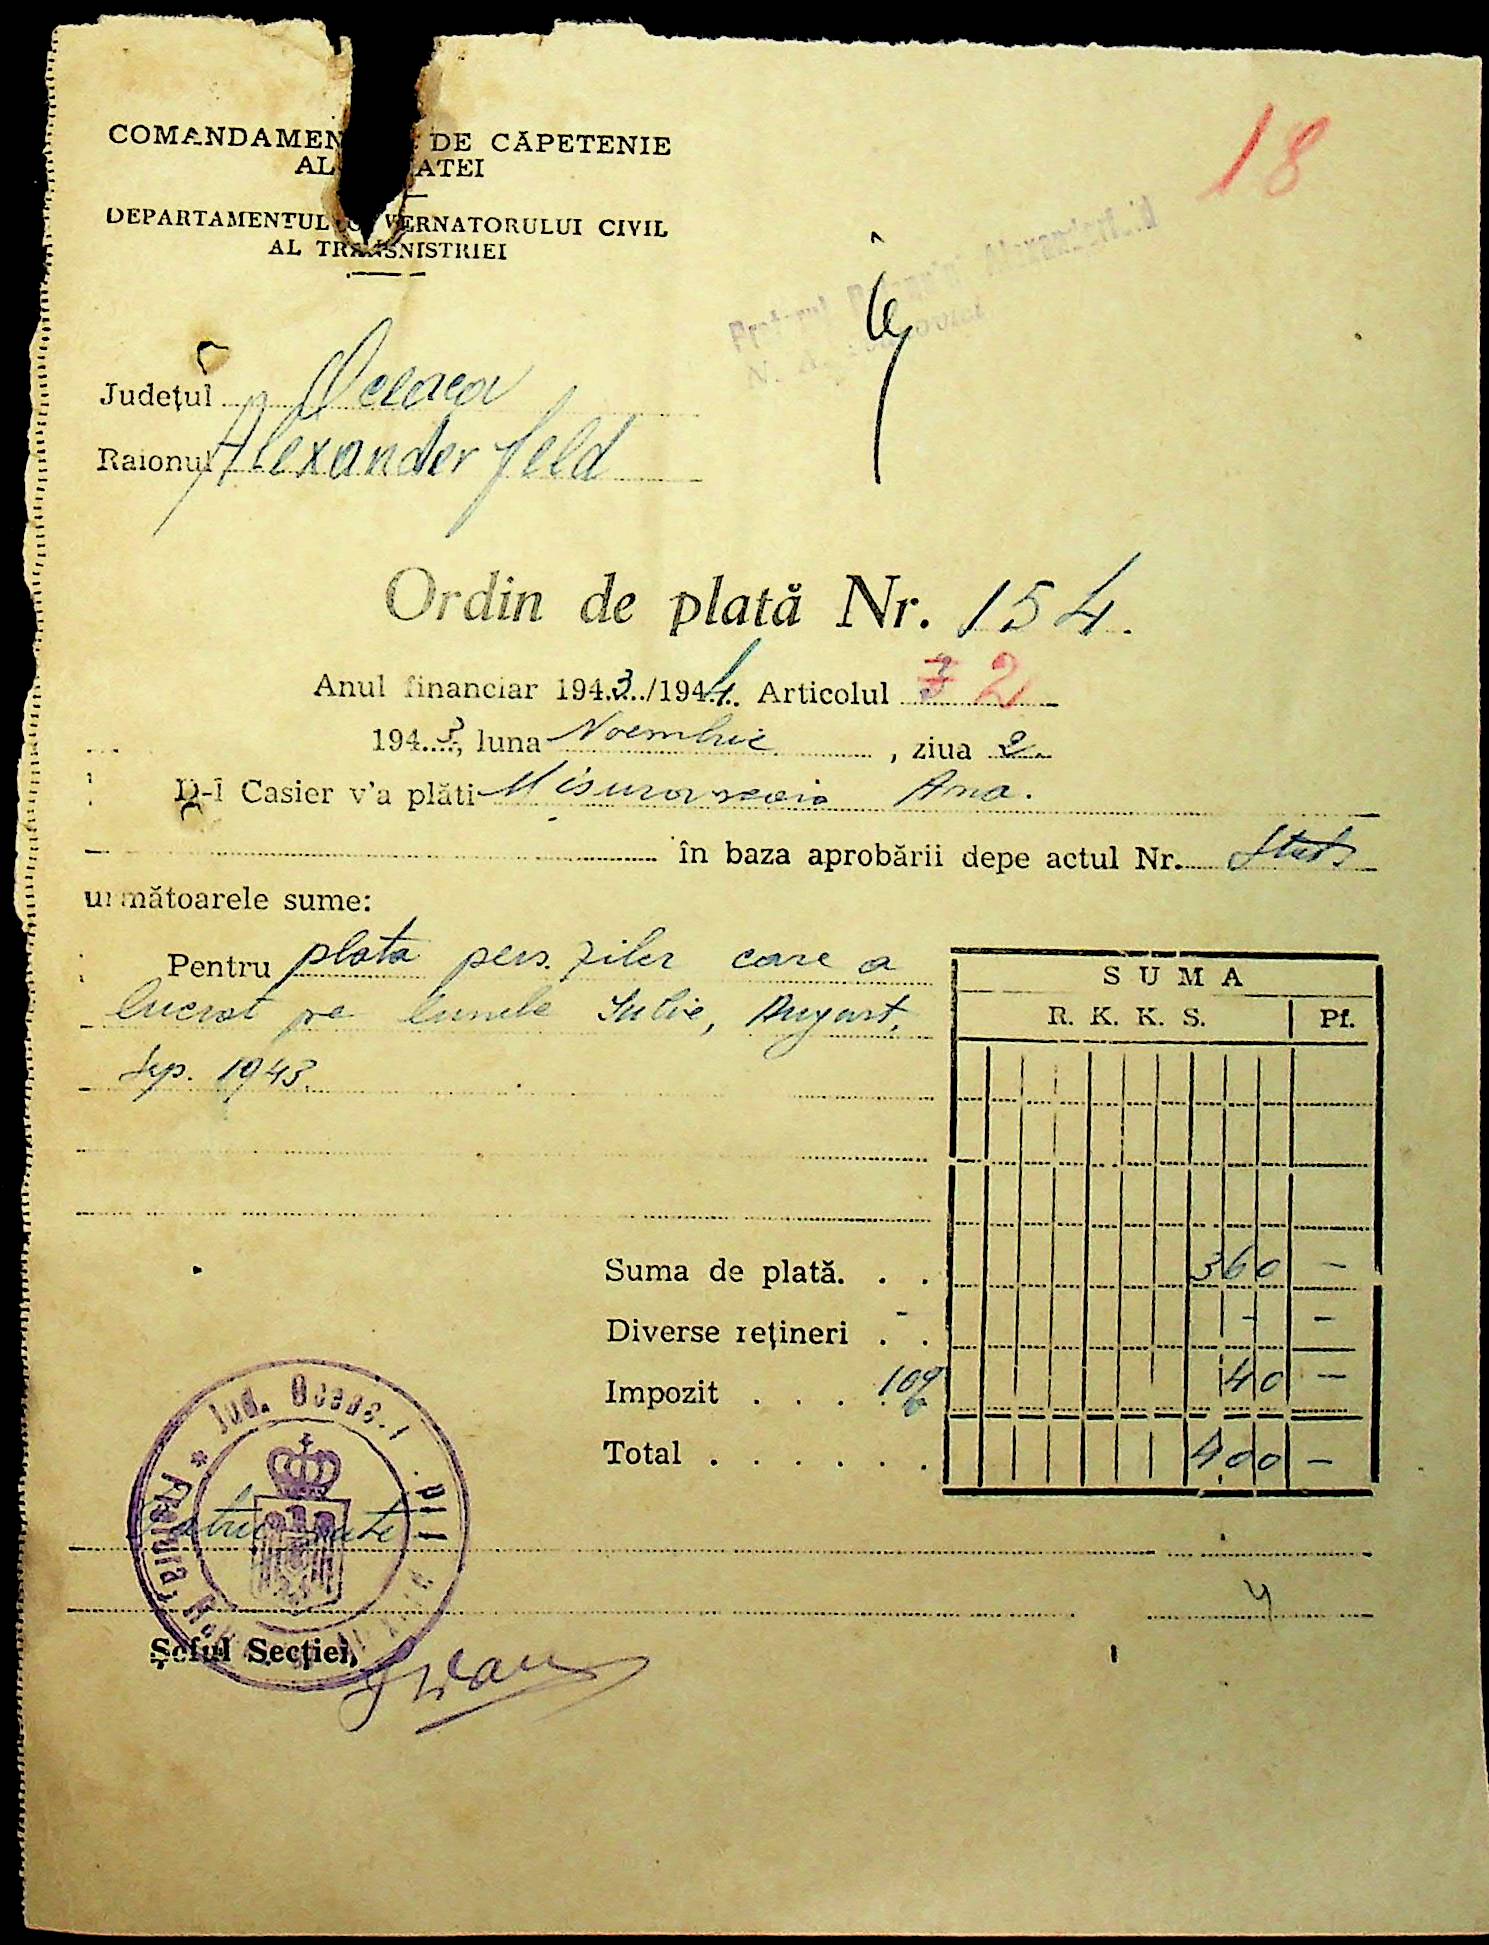 18
COMANDAMEN DE CĂPETENIE
AL ATEI
DEPARTAMENTUL GUVERNATORULUI CIVIL
AL TRANSNISTRIEI
Pretorul Alexanderfeld
N.
Județul Oceacov
Raionul Alexanderfeld
Ordin de plată Nr. 154.
Anul financiar 1943/1944 Articolul 2
1943, luna Noembrie, ziua 2.
D-l Casier v'a plăti Ana.
în baza aprobării depe actul Nr.
următoarele sume:
Pentru plata pers. ziler care a
lucrat pe lunele Iulie, August,
Sep. 1943.
SUMA
R. K. K. S. Pf.
Suma de plată. . . 360 –
Diverse rețineri . . - –
Impozit . . . . 10% 40 –
Total . . . . . . . 400 –
Patru sute
Jud. Oceac
Șeful Secției,